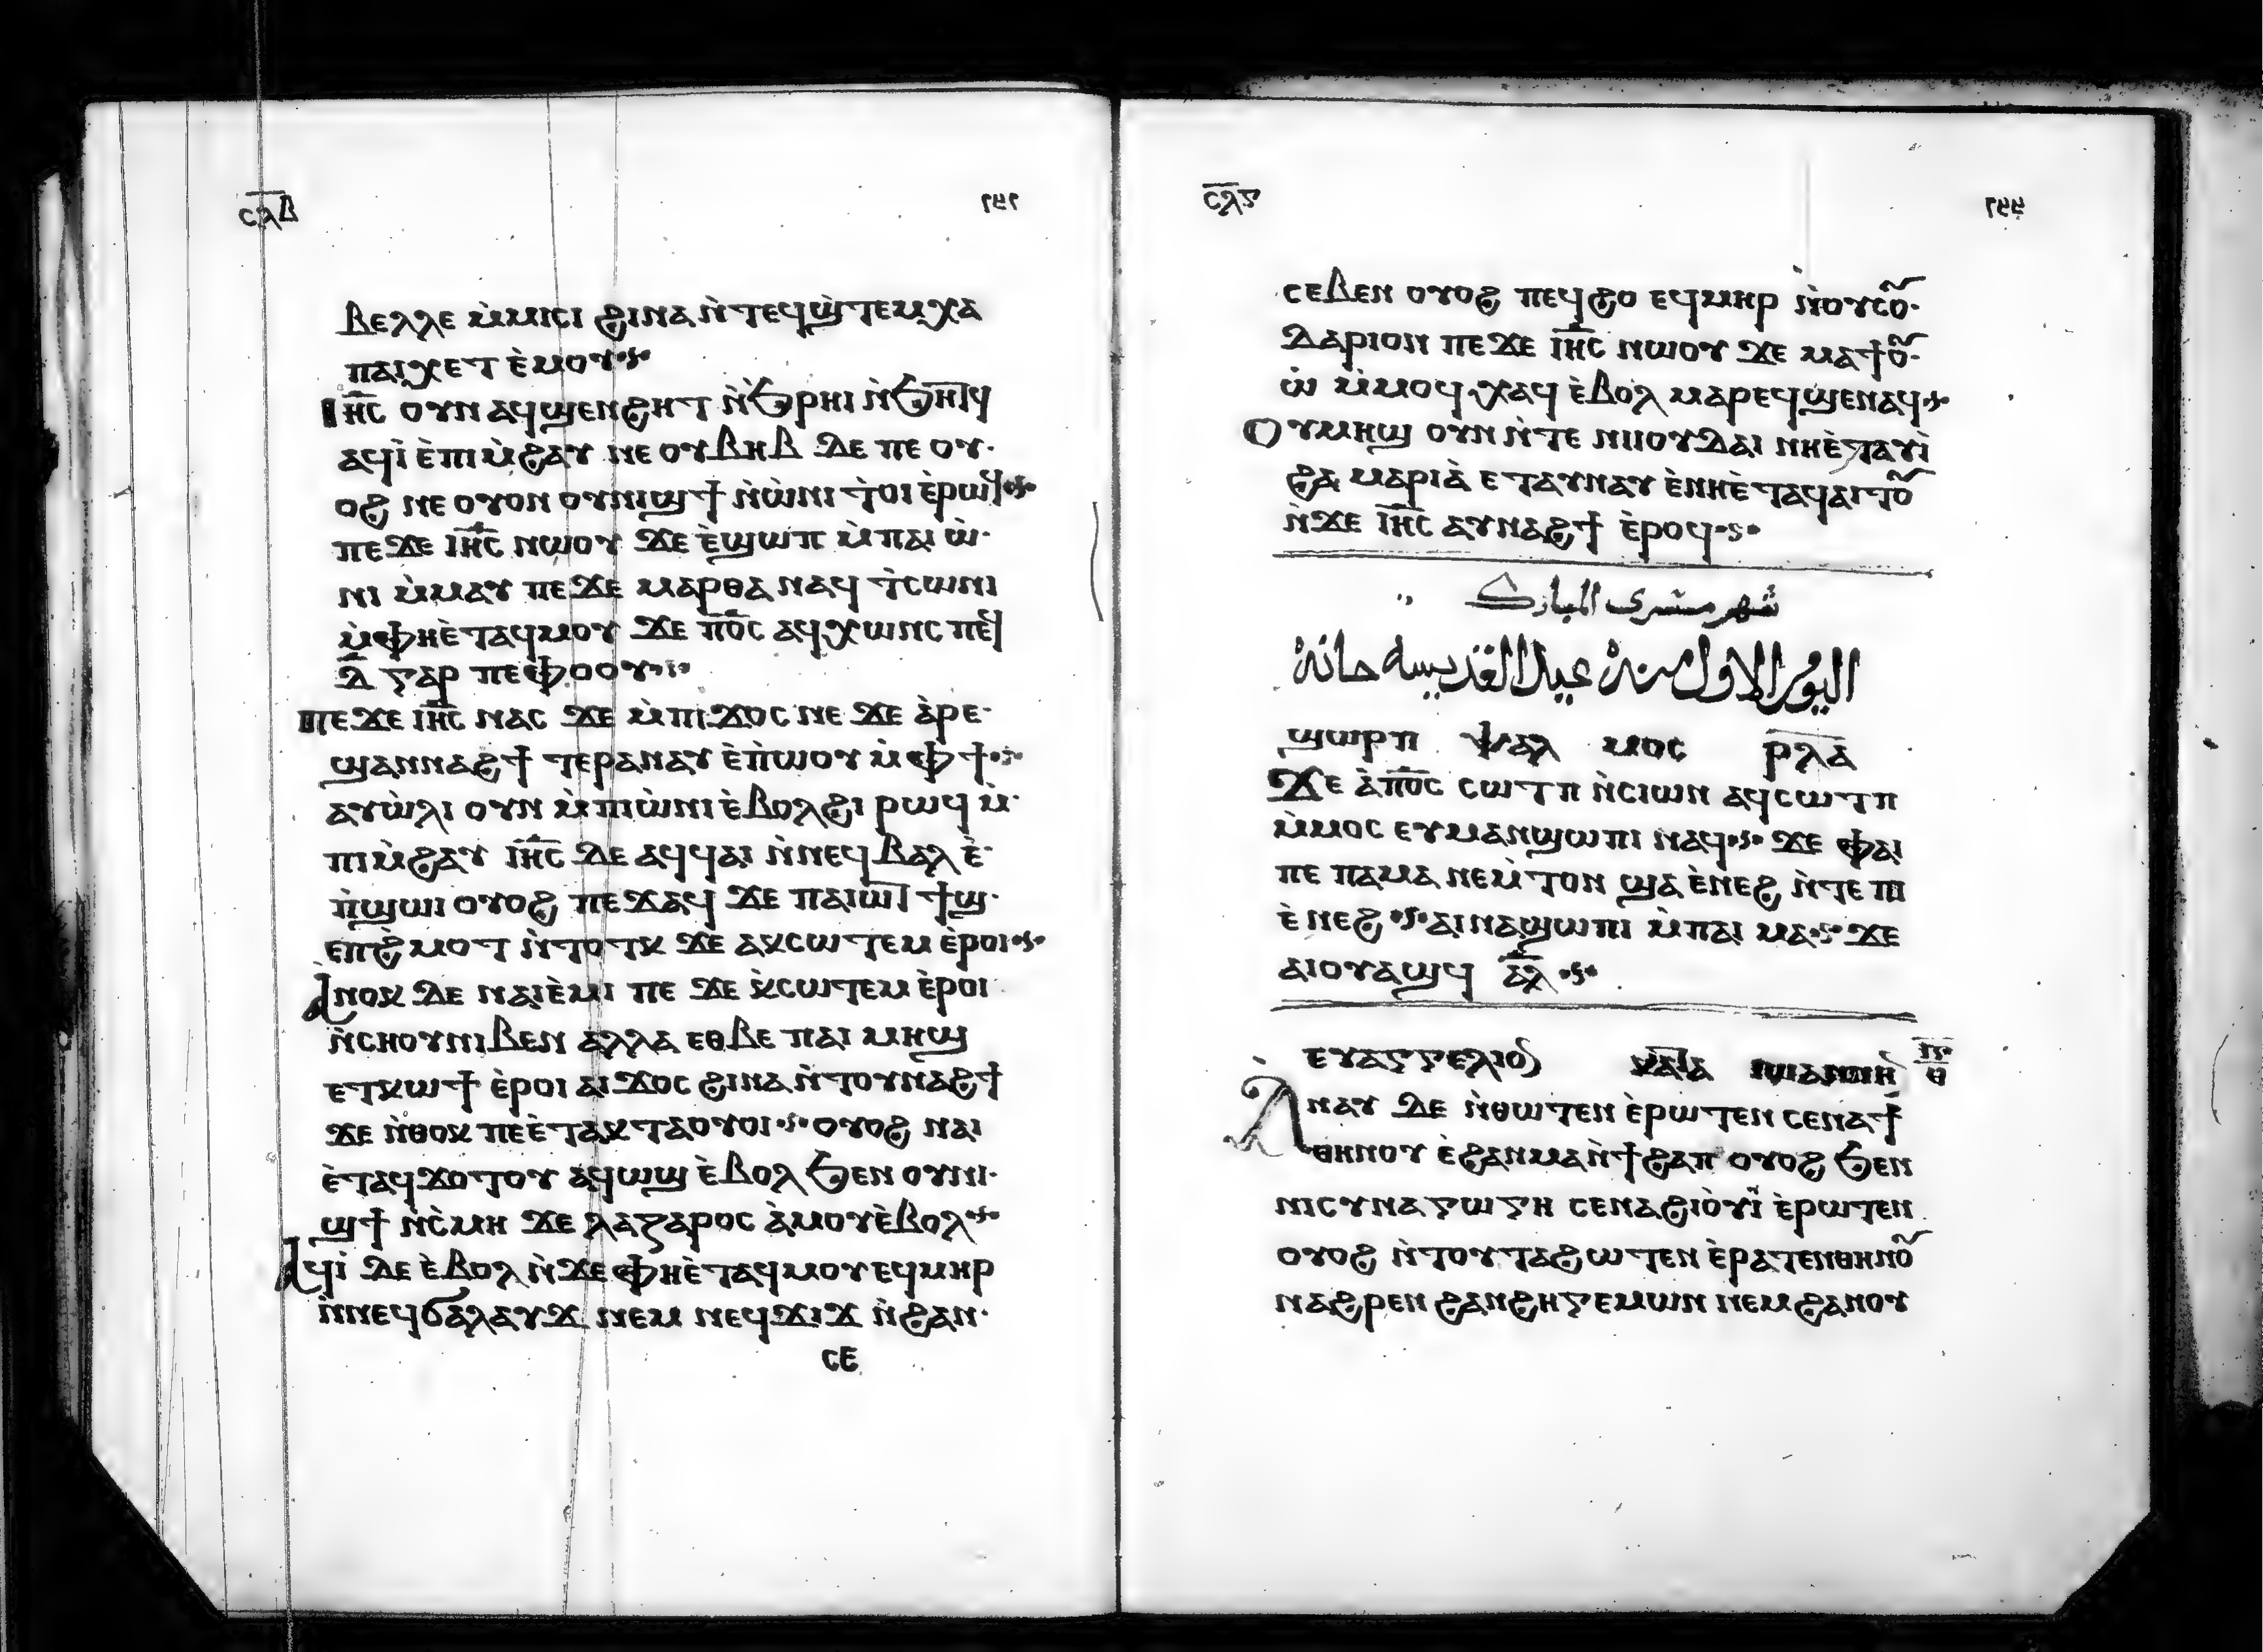 ⲥⲗⲃ
ⲃⲉⲗⲗⲉ ⲙ̀ⲙⲓⲥⲓ ϩⲓⲛⲁ ⲛ̀ⲧⲉϥϣ̀ⲧⲉⲙⲭⲁ
ⲡⲁⲓⲭⲉⲧ ⲉ̀ⲙⲟⲩ
ⲓⲏ̅ⲥ̅ ⲟⲩⲛ ⲁϥϣⲉⲛϩⲏⲧ ⲛ̀ϧⲣⲏⲓ ⲛ̀ϧⲏⲧϥ
ⲁϥⲓ̀ ⲉ̀ⲡⲓⲙ̀ϩⲁⲩ ⲛⲉ ⲟⲩⲃⲏⲃ ⲇⲉ ⲡⲉ ⲟⲩ·
ⲟϩ ⲛⲉ ⲟⲩⲟⲛ ⲟⲩⲛⲓϣϯ ⲛ̀ⲱ̀ⲛⲓ ⲧ̀ⲟⲓ ⲉ̀ⲣⲱϥ
ⲡⲉϫⲉ ⲓⲏ̅ⲥ̅ ⲛⲱⲟⲩ ϫⲉ ⲉ̀ϣⲱⲡ ⲙ̀ⲡⲁⲓ ⲱ̀·
ⲛⲓ ⲙ̀ⲙⲁⲩ ⲡⲉϫⲉ ⲙⲁⲣⲑⲁ ⲛⲁϥ ⲧ̀ⲥⲱⲛⲓ
ⲙ̀ⲫⲏⲉ̀ⲧⲁϥⲙⲟⲩ ϫⲉ ⲡⲟ̅ⲥ̅ ⲁϥⲭⲱⲛⲥ ⲡⲉϥ
ⲇ̅ ⲅⲁⲣ ⲡⲉⲫⲟⲟⲩ
ⲡⲉϫⲉ ⲓⲏ̅ⲥ̅ ⲛⲁⲥ ϫⲉ ⲙ̀ⲡⲓϫⲟⲥ ⲛⲉ ϫⲉ ⲁ̀ⲣⲉ·
ϣⲁⲛⲛⲁϩϯ ⲧⲉⲣⲁⲛⲁⲩ ⲉ̀ⲡ̀ⲱⲟⲩ ⲙ̀ⲫϯ
ⲁⲩⲱ̀ⲗⲓ ⲟⲩⲛ ⲙ̀ⲡⲓⲱ̀ⲛⲓ ⲉ̀ⲃⲟⲗϩⲓ ⲣⲱϥ ⲙ̀·
ⲡⲓⲙ̀ϩⲁⲩ ⲓⲏ̅ⲥ̅ ⲇⲉ ⲁϥϥⲁⲓ ⲛ̀ⲛⲉϥⲃⲁⲗ ⲉ̀·
ⲡ̀ϣⲱⲓ ⲟⲩⲟϩ ⲡⲉϫⲁϥ ϫⲉ ⲡⲁⲓⲱⲧ ϯϣ·
ⲉⲡϩ̀ⲙⲟⲧ ⲛ̀ⲧⲟⲧⲕ ϫⲉ ⲁⲕⲥⲱⲧⲉⲙ ⲉ̀ⲣⲟⲓ
ⲁⲛⲟⲕ ⲇⲉ ⲛⲁⲓⲉ̀ⲙⲓ ⲡⲉ ϫⲉ ⲕ̀ⲥⲱⲧⲉⲙ ⲉ̀ⲣⲟⲓ
ⲛ̀ⲥⲏⲟⲩⲛⲓⲃⲉⲛ ⲁⲗⲗⲁ ⲉⲑⲃⲉ ⲡⲁⲓ ⲙⲏϣ
ⲉⲧⲕⲱϯ ⲉ̀ⲣⲟⲓ ⲁⲓϫⲟⲥ ϩⲓⲛⲁ ⲛ̀ⲧⲟⲩⲛⲁϩϯ
ϫⲉ ⲛ̀ⲑⲟⲕ ⲡⲉⲉ̀ⲧⲁⲕⲧⲁⲟⲩⲟⲓ ⲟⲩⲟϩ ⲛⲁⲓ
ⲉ̀ⲧⲁϥϫⲟⲧⲟⲩ ⲁϥⲱϣ ⲉ̀ⲃⲟⲗ ϧⲉⲛ ⲟⲩⲛⲓ·
ϣϯ ⲛ̀ⲥ̀ⲙⲏ ϫⲉ ⲗⲁⲍⲁⲣⲟⲥ ⲁ̀ⲙⲟⲩⲉ̀ⲃⲟⲗ
ⲁϥⲓ̀ ⲇⲉ ⲉ̀ⲃⲟⲗ ⲛ̀ϫⲉ ⲫⲏⲉ̀ⲧⲁϥⲙⲟⲩ ⲉϥⲙⲏⲣ
ⲛ̀ⲛⲉϥϭⲁⲗⲁⲩϫ ⲛⲉⲙ ⲛⲉϥϫⲓϫ ⲛ̀ϩⲁⲛ·
ⲥⲉ
ⲥⲗⲅ
ⲥⲉⲃⲉⲛ ⲟⲩⲟϩ ⲡⲉϥϩⲟ ⲉϥⲙⲏⲣ ⲛ̀ⲟⲩⲥⲟⲩ·
ⲇⲁⲣⲓⲟⲛ ⲡⲉϫⲉ ⲓⲏ̅ⲥ̅ ⲛⲱⲟⲩ ϫⲉ ⲙⲁϯⲟⲩ·
ⲱ̀ ⲙ̀ⲙⲟϥ·ⲭⲁϥ ⲉ̀ⲃⲟⲗ ⲙⲁⲣⲉϥϣⲉⲛⲁϥ
ⲟⲩⲙⲏϣ ⲟⲩⲛ ⲛ̀ⲧⲉ ⲛⲓⲓⲟⲩⲇⲁⲓ ⲛⲏⲉ̀ⲧⲁⲩⲓ̀
ϩⲁ ⲙⲁⲣⲓⲁ̀ ⲉⲧⲁⲩⲛⲁⲩ ⲉ̀ⲛⲏⲉ̀ⲧⲁϥⲁⲓⲧⲟⲩ
ⲛ̀ϫⲉ ⲓⲏ̅ⲥ̅ ⲁⲩⲛⲁϩϯ ⲉ̀ⲣⲟϥ
شهر مسرى المبارك
اليوم الاول منه عيد القديسه حانه
ϣⲱⲣⲡ ⲯⲁⲗ ⲙⲟⲥ ⲣⲗⲁ
ϫⲉ ⲁ̀ⲡⲟ̅ⲥ̅ ⲥⲱⲧⲡ ⲛ̀ⲥⲓⲱⲛ ⲁϥⲥⲱⲧⲡ
ⲙ̀ⲙⲟⲥ ⲉⲩⲙⲁⲛϣⲱⲡⲓ ⲛⲁϥ ϫⲉ ⲫⲁⲓ
ⲡⲉ ⲡⲁⲙⲁ ⲛⲉⲙ̀ⲧⲟⲛ ϣⲁ ⲉ̀ⲛⲉϩ ⲛ̀ⲧⲉ ⲡⲓ
ⲉ̀ⲛⲉϩ ⲁⲓⲛⲁϣⲱⲡⲓ ⲙ̀ⲡⲁⲓ ⲙⲁ ϫⲉ
ⲁⲓⲟⲩⲁϣϥ ⲁⲗ
ⲉⲩⲁⲅⲅⲉⲗⲓⲟⲛ ⲕⲁⲧⲁ
ⲁⲛⲁⲩ ⲇⲉ ⲛ̀ⲑⲱⲧⲉⲛ ⲉ̀ⲣⲱⲧⲉⲛ ⲥⲉⲛⲁϯ
ⲑⲏⲛⲟⲩ ⲉ̀ϩⲁⲛⲙⲁⲛ̀ϯϩⲁⲡ ⲟⲩⲟϩ ϧⲉⲛ
ⲛⲓⲥⲩⲛⲁⲅⲱⲅⲏ ⲥⲉⲛⲁϩⲓⲟ̀ⲩⲓ̀ ⲉ̀ⲣⲱⲧⲉⲛ
ⲟⲩⲟϩ ⲛ̀ⲧⲟⲩⲧⲁϩⲱⲧⲉⲛ ⲉ̀ⲣⲁⲧⲉⲛⲑⲏⲛⲟⲩ
ⲛⲁϩⲣⲉⲛ ϩⲁⲛϩⲏⲅⲉⲙⲱⲛ ⲛⲉⲙϩⲁⲛⲟⲩ